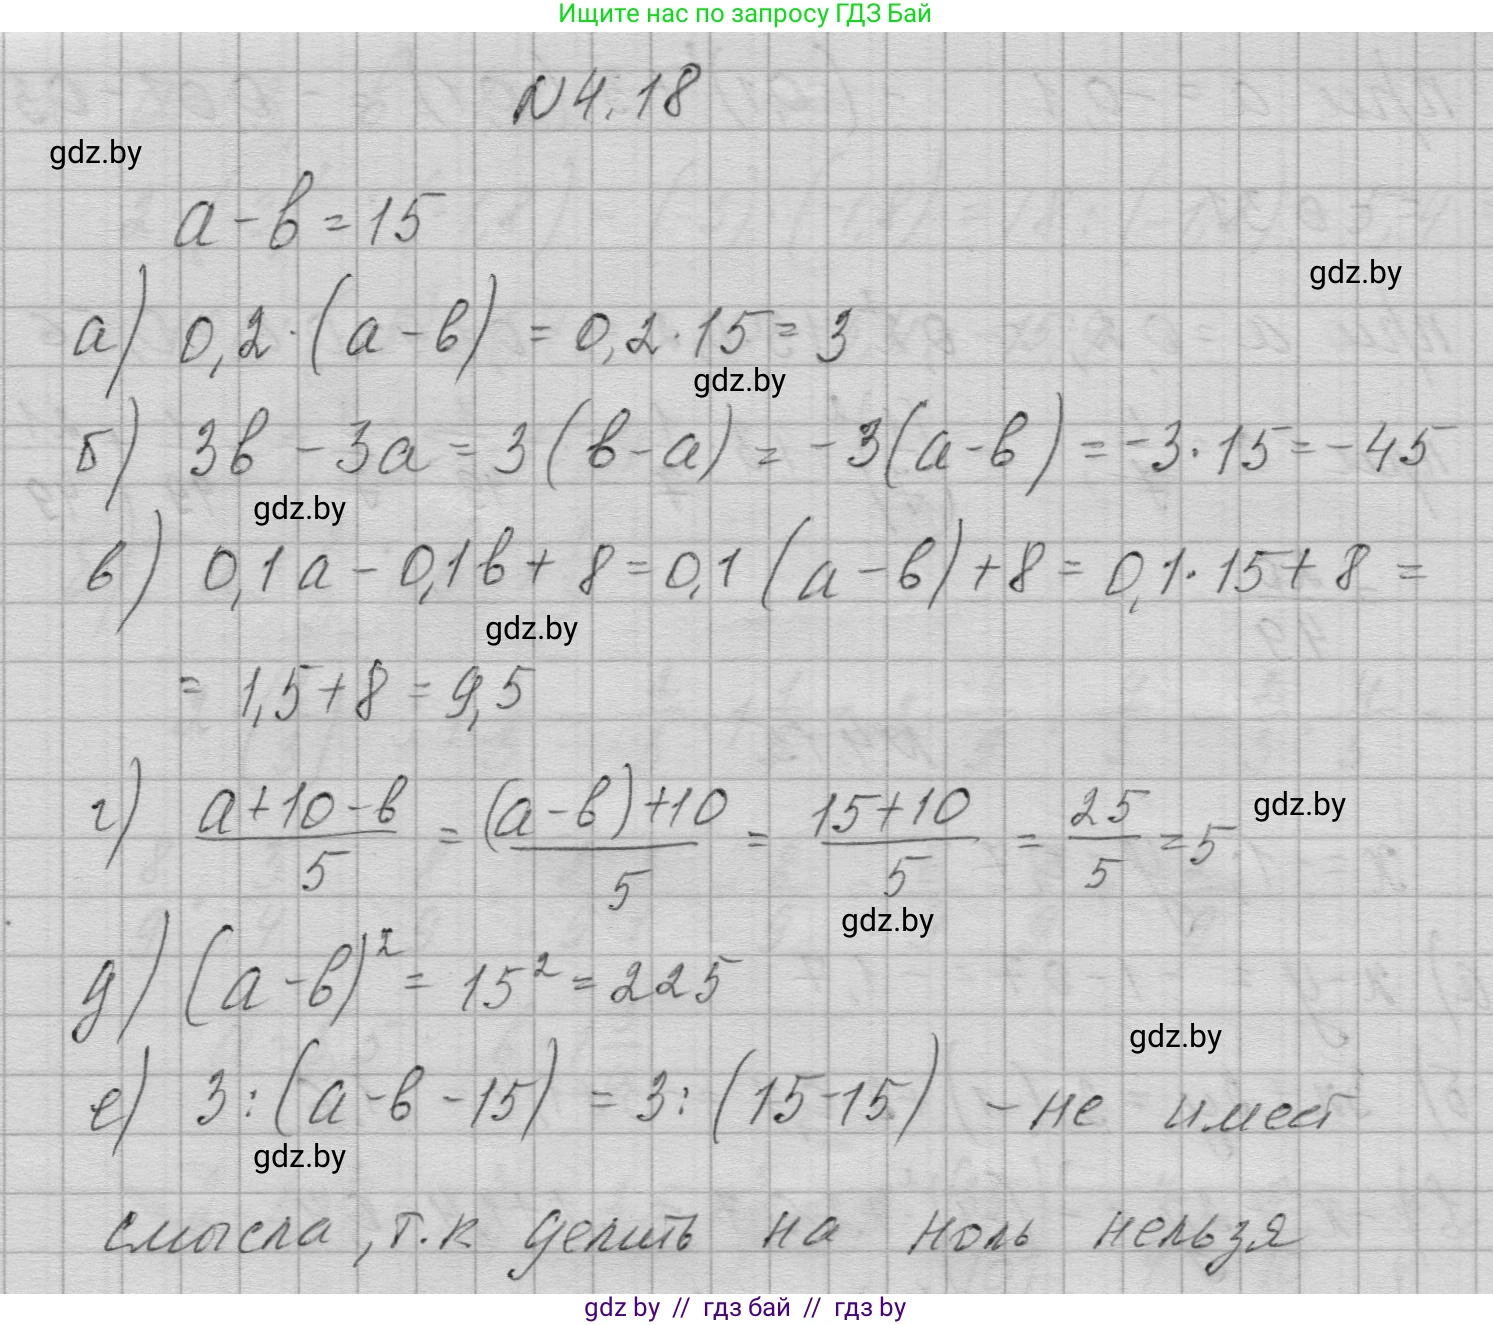 Ищите нас по запросу ГДЗ Бай
N4.18
gdz.by
a - b = 15
gdz.by
а) 0,2 · (a - b) = 0,2 · 15 = 3
gdz.by
б) 3b - 3a = 3(b - a) = -3(a - b) = -3 · 15 = -45
gdz.by
в) 0,1a - 0,1b + 8 = 0,1(a - b) + 8 = 0,1 · 15 + 8 =
gdz.by
= 1,5 + 8 = 9,5
г) (a + 10 - b)/5 = ((a - b) + 10)/5 = (15 + 10)/5 = 25/5 = 5
gdz.by
gdz.by
д) (a - b)² = 15² = 225
gdz.by
е) 3 : (a - b - 15) = 3 : (15 - 15) - не имеет
gdz.by
смысла, т.к делить на ноль нельзя
gdz by // гдз бай // гдз by